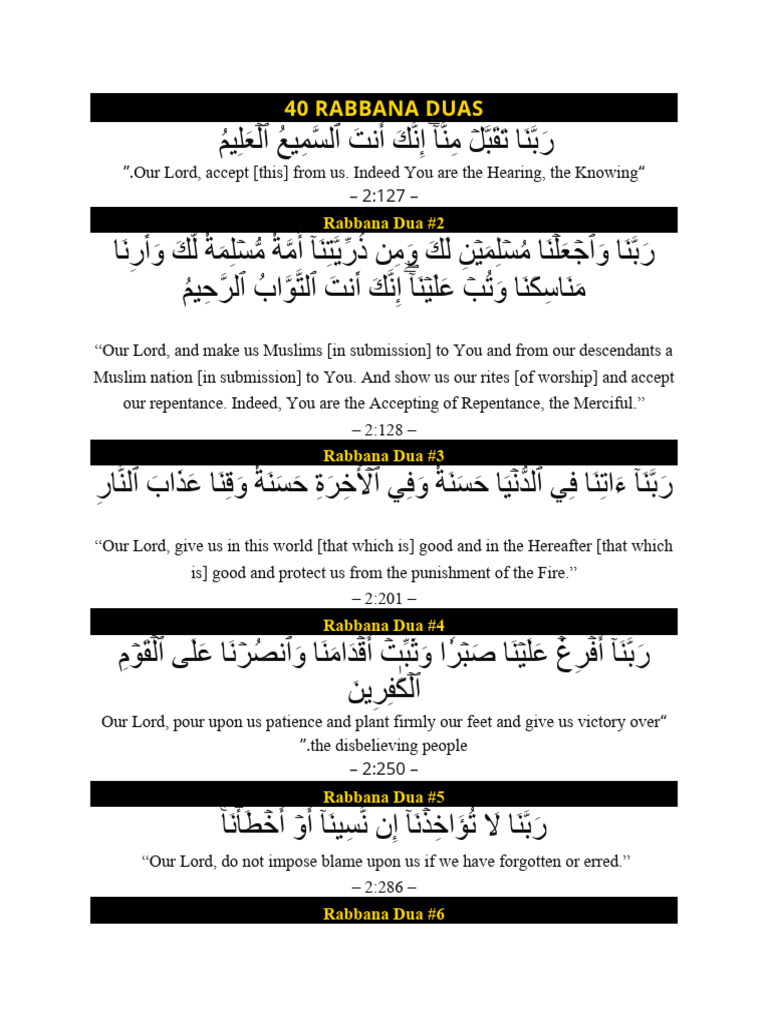 40 RABBANA DUAS
رَبَّنَا تَقَبَّلۡ مِنَّآۖ إِنَّكَ أَنتَ ٱلسَّمِيعُ ٱلۡعَلِيمُ
”.Our Lord, accept [this] from us. Indeed You are the Hearing, the Knowing“
– 2:127 –
Rabbana Dua #2
رَبَّنَا وَٱجۡعَلۡنَا مُسۡلِمَيۡنِ لَكَ وَمِن ذُرِّيَّتِنَآ أُمَّةٗ مُّسۡلِمَةٗ لَّكَ وَأَرِنَا
مَنَاسِكَنَا وَتُبۡ عَلَيۡنَآۖ إِنَّكَ أَنتَ ٱلتَّوَّابُ ٱلرَّحِيمُ
“Our Lord, and make us Muslims [in submission] to You and from our descendants a
Muslim nation [in submission] to You. And show us our rites [of worship] and accept
our repentance. Indeed, You are the Accepting of Repentance, the Merciful.”
– 2:128 –
Rabbana Dua #3
رَبَّنَآ ءَاتِنَا فِي ٱلدُّنۡيَا حَسَنَةٗ وَفِي ٱلۡأٓخِرَةِ حَسَنَةٗ وَقِنَا عَذَابَ ٱلنَّارِ
“Our Lord, give us in this world [that which is] good and in the Hereafter [that which
is] good and protect us from the punishment of the Fire.”
– 2:201 –
Rabbana Dua #4
رَبَّنَآ أَفۡرِغۡ عَلَيۡنَا صَبۡرٗا وَثَبِّتۡ أَقۡدَامَنَا وَٱنصُرۡنَا عَلَى ٱلۡقَوۡمِ
ٱلۡكَٰفِرِينَ
Our Lord, pour upon us patience and plant firmly our feet and give us victory over“
”.the disbelieving people
– 2:250 –
Rabbana Dua #5
رَبَّنَا لَا تُؤَاخِذۡنَآ إِن نَّسِينَآ أَوۡ أَخۡطَأۡنَاۚ
“Our Lord, do not impose blame upon us if we have forgotten or erred.”
– 2:286 –
Rabbana Dua #6